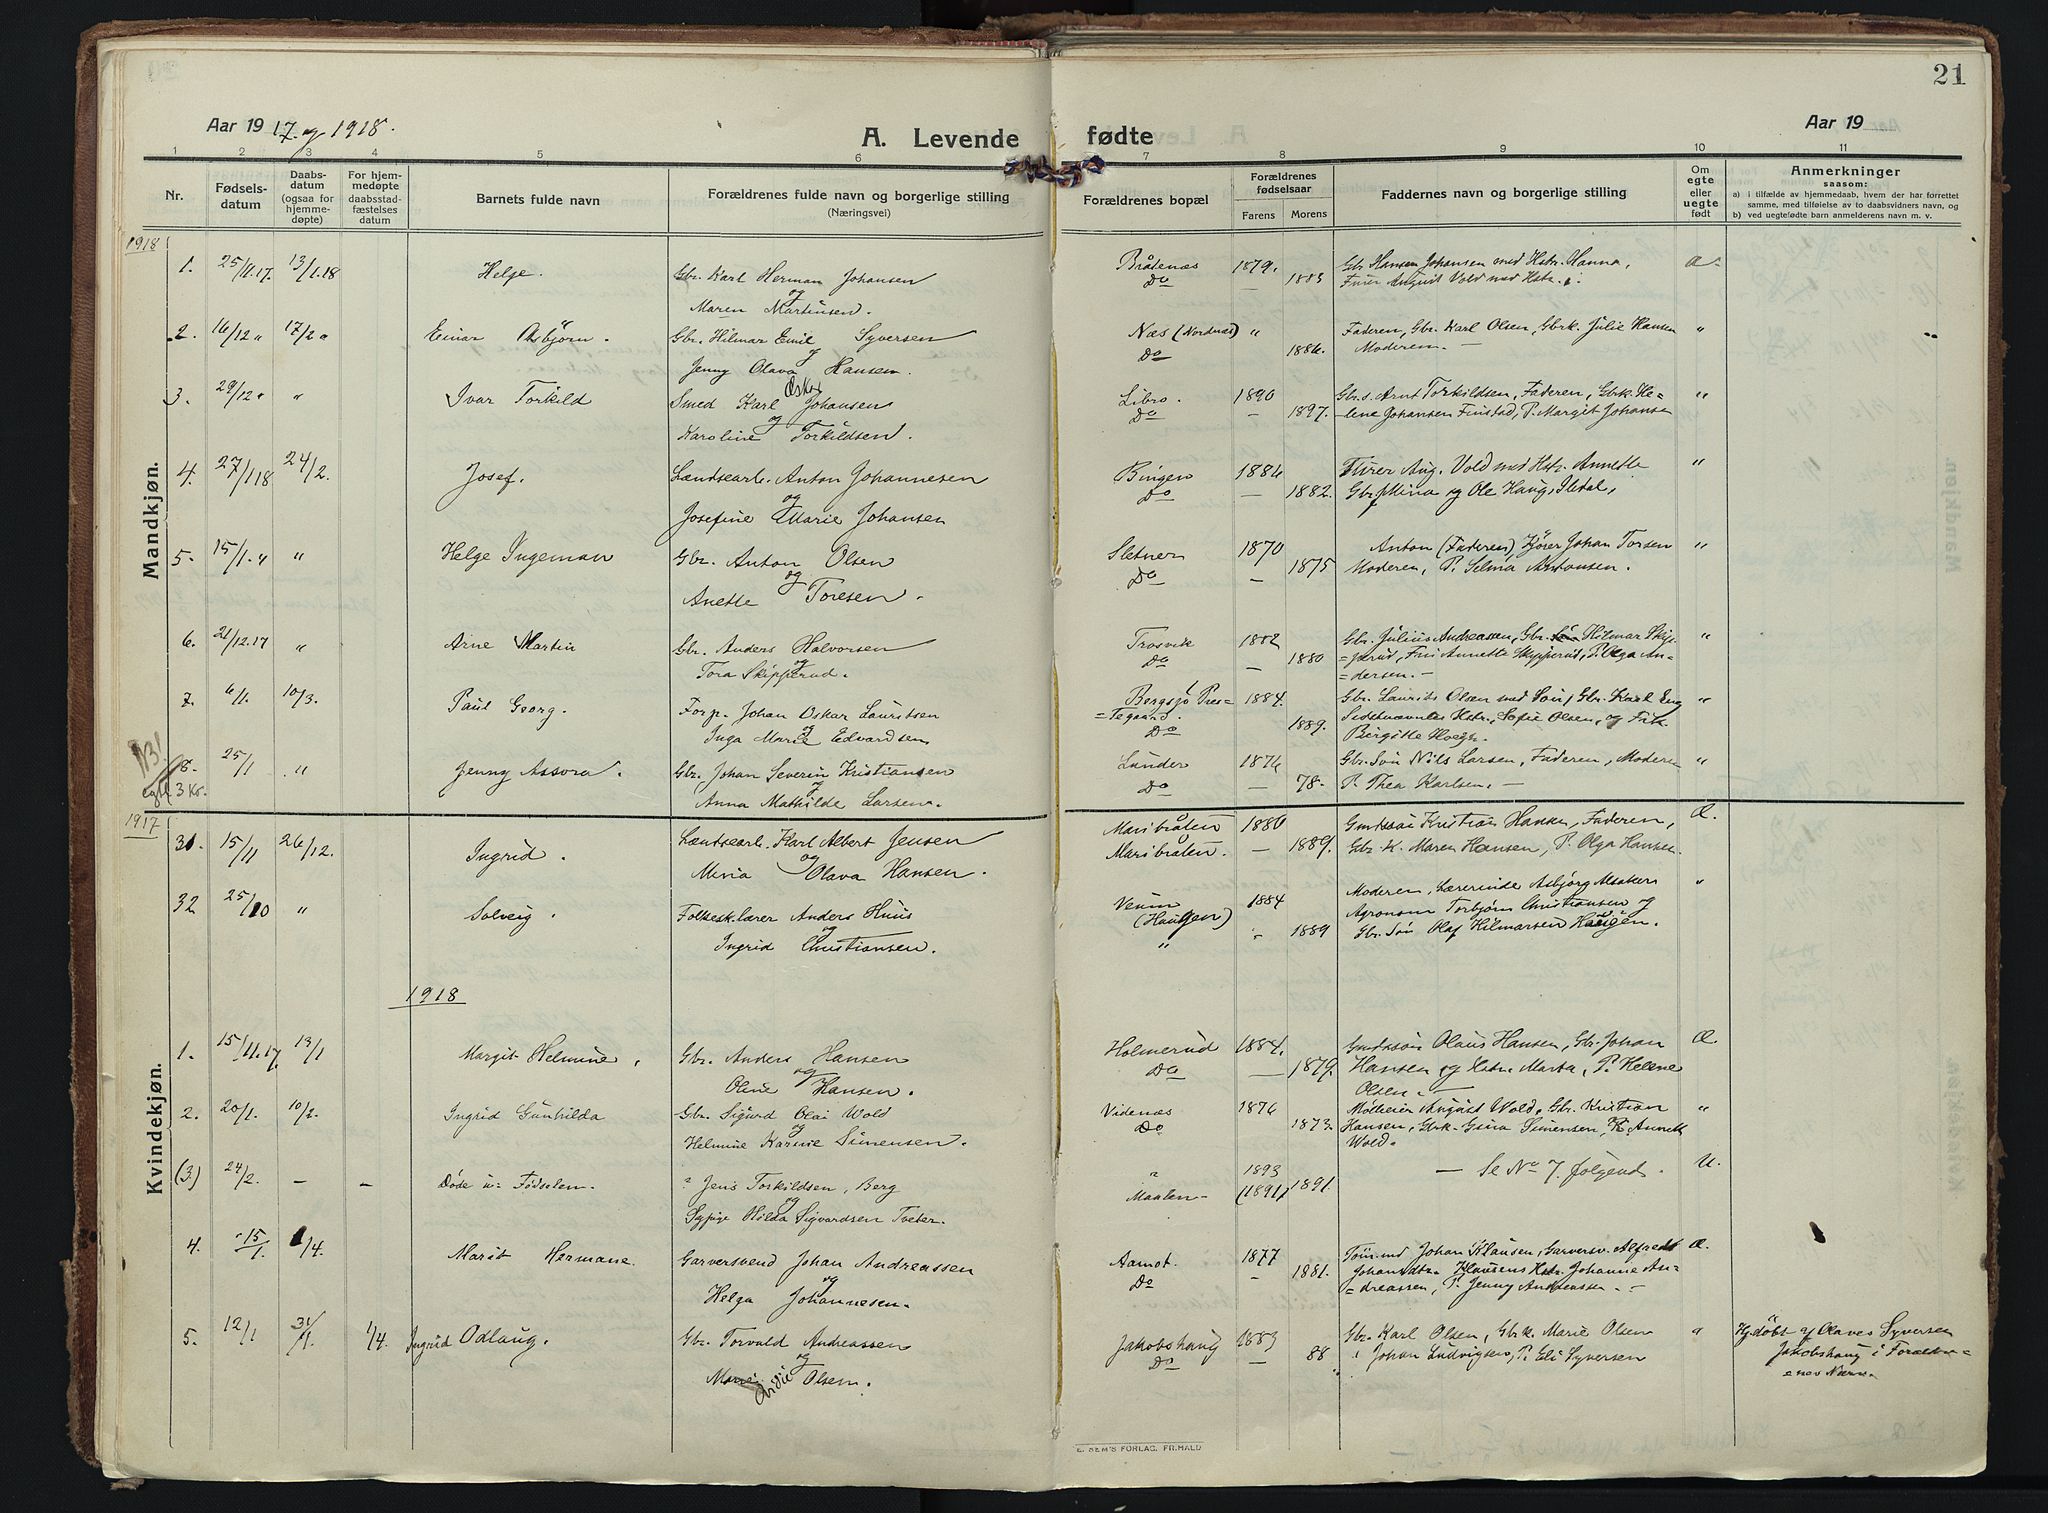 21
Aar 19 17 og 1918.
Aar 19
A. Levende fødte
1 2 3 4 5 6 7 8 9 10 11
Nr.
Fødsels-
datum
Daabs-
datum
(ogsaa for
hjemme-
døpte)
For hjem-
medøpte
daabsstad-
fæstelses
datum
Barnets fulde navn
Forældrenes fulde navn og borgerlige stilling
(Næringsvei)
Forældrenes bopæl
Forældrenes
fødselsaar
Farens Morens
Faddernes navn og borgerlige stilling
Om
egte
eller
uegte
født
Anmerkninger
saasom:
a) i tilfælde av hjemmedaab, hvem der har forrettet
samme, med tilføielse av to daabsvidners navn, og
b) ved uegtefødte barn anmelderens navn m. v.
Mandkjøn.
1918
1. 25/11.17. 13/1.18 Helge. Gbr. Karl Herman Johansen Bråtenæs 1879. Gbr Hansen Johansen med Hstr. Hanna,
og
Maren Martinsen. Do 1883 August Vold med Hstr.
2. 16/12 " 17/2 " Einar Asbjørn. Gbr. Hilmar Emil Syversen Næs (Nordnæs) " Faderen, Gbr. Karl Olsen, Gbrk. Julie Hansen "
og
Jenny Olava Hansen. Do 1886. Moderen. —
3. 29/12 " " Ivar Torkild Smed Karl Oskar Johansen Libro. 1890 Gbr.s. Arnt Torkildsen, Faderen, Gbrk. He- "
og
Karoline Torkildsen. Do — 1897. =lene Johansen Finstad, P. Margit Johansen
4. 27/1 18 24/2. Josef. Landsearb. Anton Johannesen Bingen 1886 Aug. Vold med Hstr. Annette "
og
Josefine Marie Johansen Do — 1882. Gbr. Mina og Ole Haug,
5. 15/1. " " Helge Ingeman Gbr. Anton Olsen Sletner 1870 Anton (Faderen), Johan Torsen "
og
Anette Toresen. Do — 1875 Moderen, P. Selma Antonsen.
6. 21/12.17 " Arne Martin Gbr. Anders Halvorsen Trosvik 1882 Gbr. Julius Andreassen, Gbr. Hilmar Skip- "
og
Tora Skipperud. Do — 1880 =perud, Annette Skipperud, P. Olga An-
=dersen. —
7. 6/1. 10/3. Paul Georg. Forp. Johan Oskar Lauritsen Bergsjø Pres- 1884. Gbr. Laurits Olsen med Gbr. Karl Eng "
=tegaard.
og
Inga Marie Edvardsen Do 1889. Sidstnævntes Hstr., Sofie Olsen, og Frk.
Birgitte Hoegh.
8. 25/1 " Jenny Assora. Gbr. Johan Severin Kristiansen Lunder 1876 Gbr. Søn Nils Larsen, Faderen, Moderen "
NB!
3 Kv.
og
Anna Mathilde Larsen. Do 78. P. Thea Karlsen. —
Kvindekjøn.
1917
31. 15/11 26/12. Ingrid. Landsearb. Karl Albert Jensen Maribråten 1880 Gmdssøn Kristian Hansen, Faderen, Æ.
og
Olava Hansen. Maribråten. — 1889. Gbr. K. Maren Hansen, P. Olga Hansen.
32 25/10 " Solveig. Folkesklærer Anders Huus Venin 1884 Moderen, Lærerinde Asbjørg Alsaker "
(Haugen) Agronom Torbjørn Christiansen og
og
Ingrid Christiansen. " — 1889 Gbr. Søn Olaf Hilmarsen Haugen.
1918
1. 15/11.17. 13/1 Margit Helmine. Gbr. Anders Hansen Holmerud 1884. Gmdssøn Olaus Hansen, Gbr. Johan Æ.
og
Oline Hansen. Do — 1879. Hansen og Hstr. Marta, P. Helene
Olsen. —
2. 20/1. 10/2. Ingrid Gunhilda Gbr. Sigurd Olai Wold Videnæs 1876 Møtheier August Wold, Gbr. Kristian "
og
Helmine Karine Simensen. Do 1873. Hansen, Gbrk. Gina Simensen, K. Annette
Wold.
(3.) 24/2. — — Døde u. Fødselen. ? Jens Torkildsen, Berg " 1893 — Se No 7. følgend. U.
og
Sypige Hilda Sigvardsen Tveter. Maalen — (1891) 1891.
4. 15/1. 1/4. Marit Hermane. Garversvend Johan Andreassen Aamot. 1877 Tømmd Johan Klausen, Garversv. Alfred Æ.
og Klausens Hstr. Johanne An-
Helga Johannesen. Do — 1881. =dreassen, P. Jenny Andreassen. —
5. 12/1 31/1. 1/4. Ingrid Odlaug. Gbr. Torvald Andreassen Jakobshaug 1883 Gbr. Karl Olsen, Gbrk. Marie Olsen " Hjdøbt af Olaves Syversen
og
Olsen. Do — 88 Johan Ludvigsen, P. Eli Syversen Jakobshaug i Foreldr=
enes Nærv.
E. SEM'S FORLAG, FR.HALD